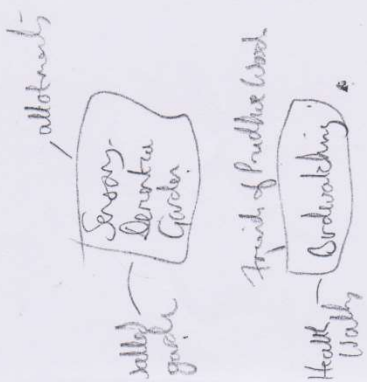 allotments
Sensory
Dementia
Garden
walled
garden
Friends of Prudhoe Woods
Birdwatching
Health
Walks